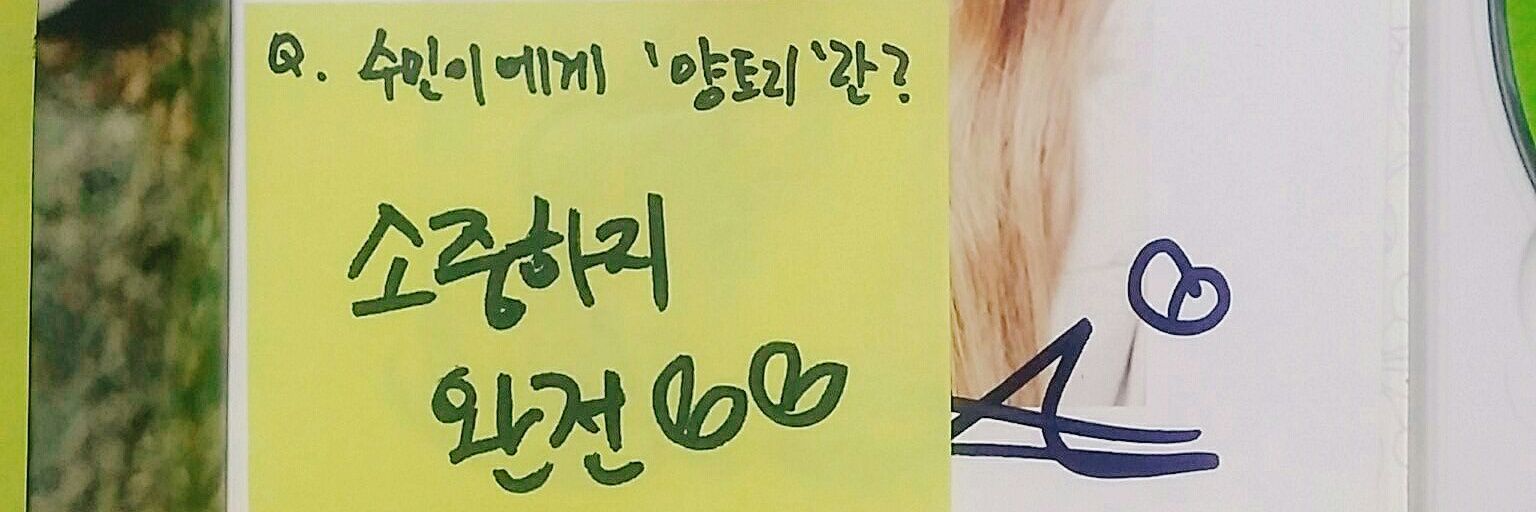 Q. 수민이에게 '양토리'란?
소중하지
완전